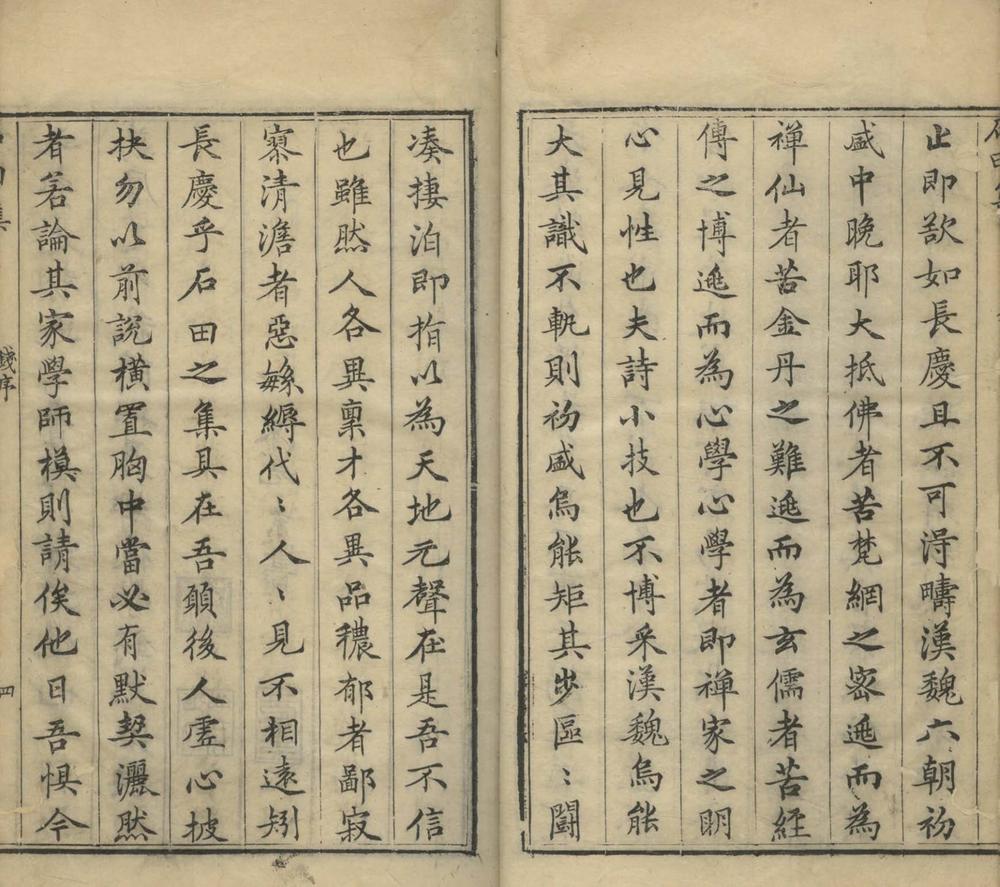 止即欲如長慶且不可淂疇漢魏六朝初
盛中晚耶大抵佛者苦梵網之宻逃而為
禅仙者苦金丹之難逃而為玄儒者苦経
傳之博逃而為心學心學者即禅家之明
心見性也夫詩小技也不博采漢魏烏能
大其識不軌則初盛烏能矩其步區〻鬭
凑捿泊即指以為天地元聲在是吾不信
也雖然人各異稟才各異品穠郁者鄙寂
寥清澹者惡緐縟代〻人〻見不相遠矧
長慶乎石田之集具在吾願後人虛心披
抉勿以前說橫置胸中當必有默契灑然
者若論其家學師模則請俟他日吾惧今
錢序
四